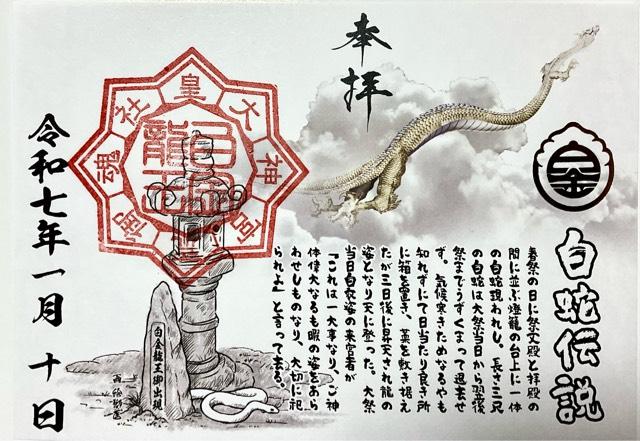 奉拝
白蛇伝説
春祭の日に祭文殿と拝殿の
間に並ぶ燈籠の台上に一体
の白蛇現われし。長さ三尺
の白蛇は大祭当日から翌後
祭までうずくまって過去せ
ず。気候寒きためなるやも
知れずにて日当たり良き所
に箱を置き、藁を敷き据え
たが三日後に昇天され龍の
姿となり天に登った。大祭
当日白衣姿の来宮者が
「これは一大事なり、ご神
体偉大なるも暇の姿をあら
わせしものなり、大切に祀
られよ」と言って去る。
皇大神宮御魂社
白金龍王
白金龍王御出現
令和七年一月十日